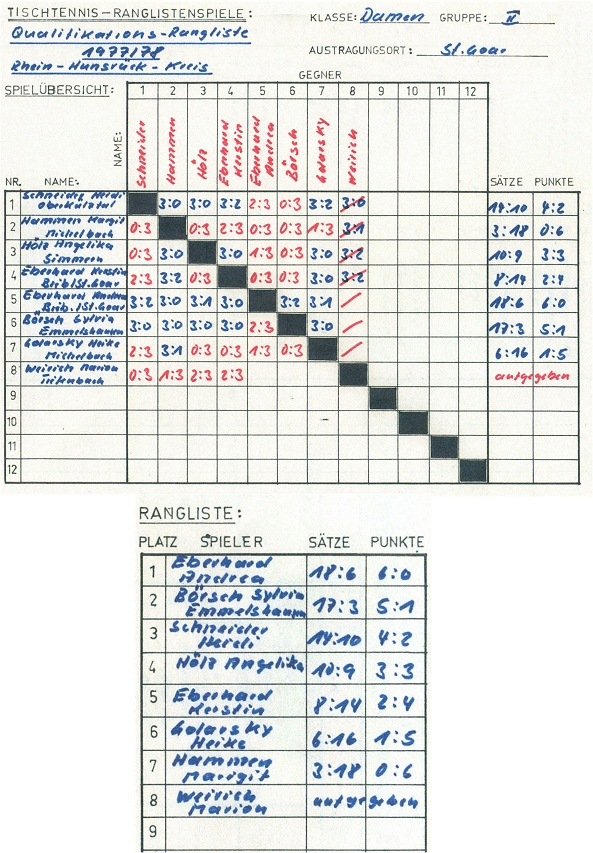 TISCHTENNIS-RANGLISTENSPIELE: KLASSE: Damen GRUPPE: II
Qualifikations-Rangliste
1977/78 AUSTRAGUNGSORT: St. Goar
Rhein-Hunsrück-Kreis
GEGNER
SPIELÜBERSICHT: 1 2 3 4 5 6 7 8 9 10 11 12
NAME: Schneider Hammen Hölz Eberhard Kerstin Eberhard Andrea Börsch Golarsky Weirich
NR. NAME: SÄTZE PUNKTE
1 Schneider Heidi 3:0 3:0 3:2 2:3 0:3 3:2 3:0 14:10 4:2
2 Hammen Margit 0:3 0:3 2:3 0:3 0:3 1:3 3:1 3:18 0:6
Michelbach
3 Hölz Angelika 0:3 3:0 3:0 1:3 0:3 3:0 3:2 10:9 3:3
Simmern
4 Eberhard Kerstin 2:3 3:2 0:3 0:3 0:3 3:0 3:2 8:14 2:4
Bieb./St.Goar
5 Eberhard Andrea 3:2 3:0 3:1 3:0 3:2 3:1 18:6 6:0
Bieb./St.Goar
6 Börsch Sylvia 3:0 3:0 3:0 3:0 2:3 3:0 17:3 5:1
Emmelshausen
7 Golarsky Heike 2:3 3:1 0:3 0:3 1:3 0:3 6:16 1:5
Michelbach
8 Weirich Marion 0:3 1:3 2:3 2:3 aufgegeben
9
10
11
12
RANGLISTE:
PLATZ SPIELER SÄTZE PUNKTE
1 Eberhard Andrea 18:6 6:0
2 Börsch Sylvia Emmelshausen 17:3 5:1
3 Schneider Heidi 14:10 4:2
4 Hölz Angelika 10:9 3:3
5 Eberhard Kerstin 8:14 2:4
6 Golarsky Heike 6:16 1:5
7 Hammen Marigit 3:18 0:6
8 Weirich Marion aufgegeben
9